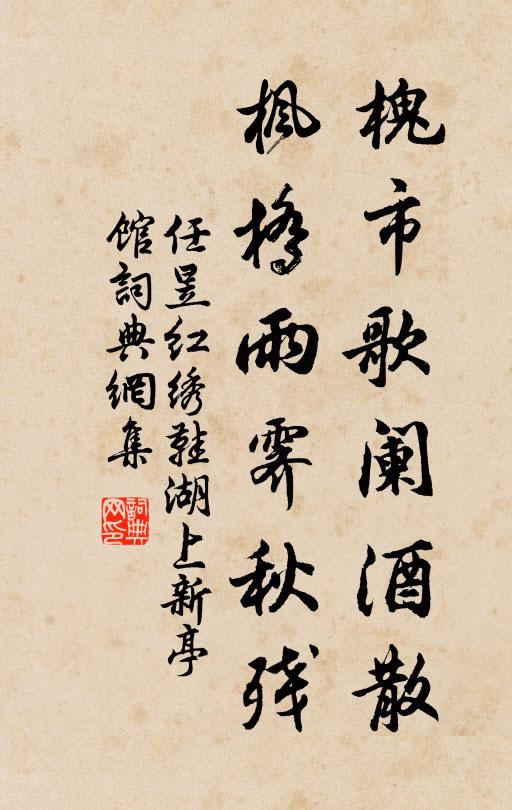 槐市歌阑酒散
枫桥雨霁秋残
任昱红绣鞋湖上新亭
馆词典網集
詞典网印